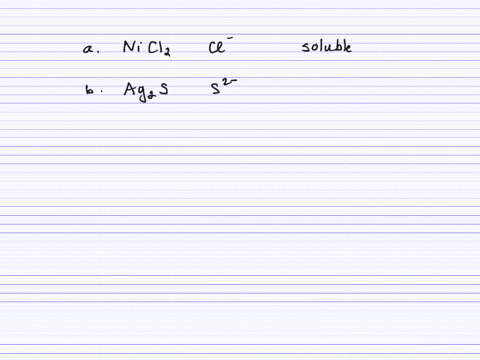 a. NiCl₂ Cl⁻ soluble
b. Ag₂S S²⁻